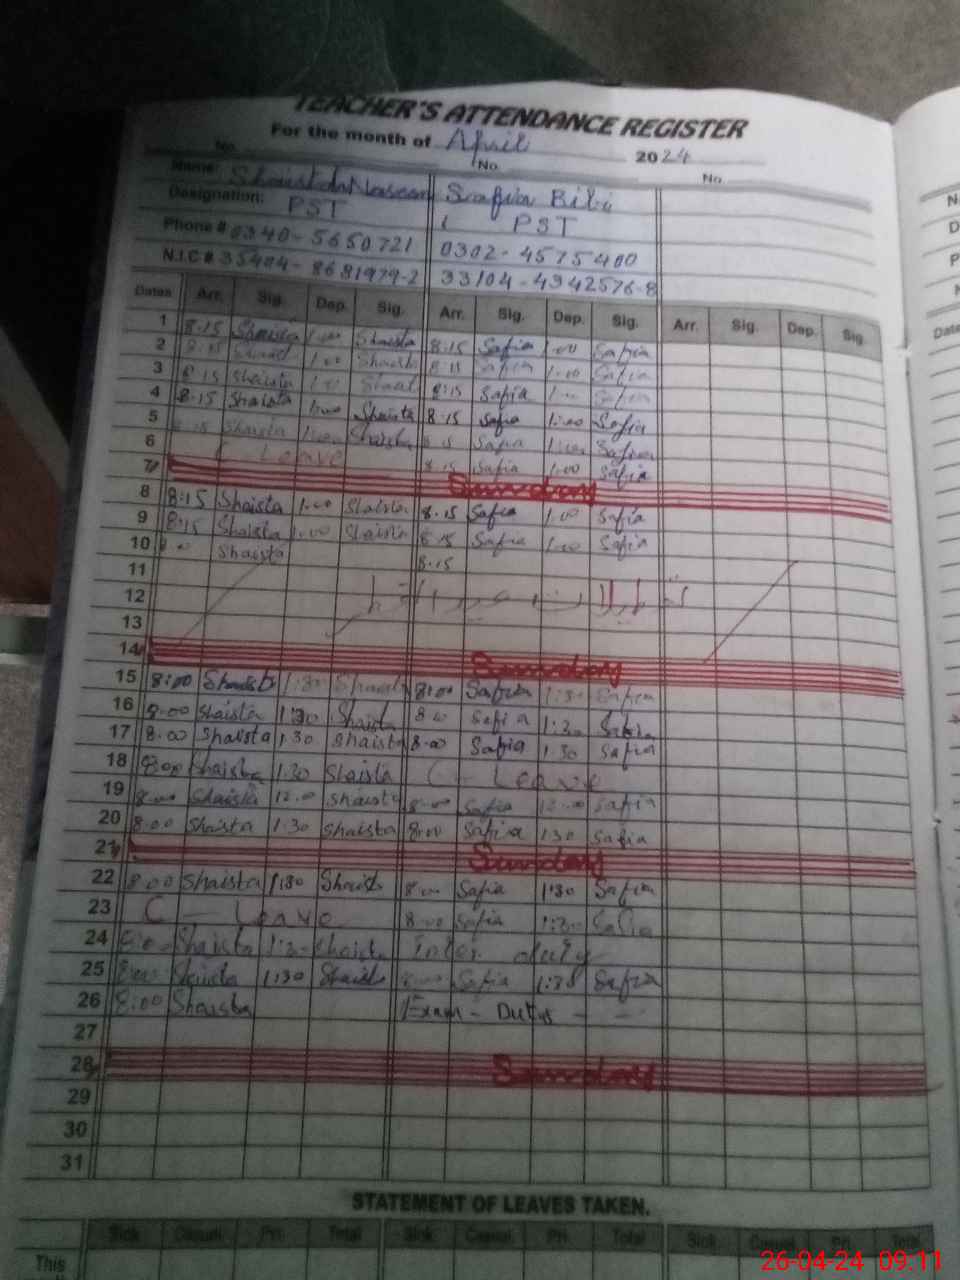 TEACHER'S ATTENDANCE REGISTER
For the month of April 2024
No. No. No.
Name: Shaista Naseem Safia Bibi
Designation: PST PST
Phone # 0340-5650721 0302-4575400
N.I.C # 35404-8681979-2 33104-4342576-8
Dates Arr. Sig. Dep. Sig. Arr. Sig. Dep. Sig. Arr. Sig. Dep. Sig.
1 8:15 Shaista 1:00 Shaista 8:15 Safia 1:00 Safia
2 8:15 1:00 Shaista 8:15 Safia 1:00 Safia
3 8:15 Shaista 8:15 Safia Safia
4 8:15 Shaista 1:00 Shaista 8:15 Safia 1:00 Safia
5 8:15 Shaista 1:00 Shaista Safia 1:00 Safia
6 C Leave 8:15 Safia 1:00 Safia
7 Sunday
8 8:15 Shaista 1:00 Shaista 8:15 Safia 1:00 Safia
9 8:15 Shaista 1:00 Shaista 8:15 Safia 1:00 Safia
10 Shaista 8:15
11
12 تعطیلات عید الفطر
13
14 Sunday
15 8:00 Shaista 1:30 Shaista 8:00 Safia 1:30 Safia
16 8:00 Shaista 1:30 Shaista 8:00 Safia 1:30 Safia
17 8:00 Shaista 1:30 Shaista 8:00 Safia 1:30 Safia
18 8:00 Shaista 1:30 Shaista C - Leave
19 8:00 Shaista 12:00 Shaista 8:00 Safia 12:00 Safia
20 8:00 Shaista 1:30 Shaista 8:00 Safia 1:30 Safia
21 Sunday
22 8:00 Shaista 1:30 Shaista 8:00 Safia 1:30 Safia
23 C - Leave 8:00 Safia 1:30 Safia
24 8:00 Shaista 1:30 Shaista duty
25 8:00 Shaista 1:30 Shaista 8:00 Safia 1:30 Safia
26 8:00 Shaista Exam - Duty - -
27
28 Sunday
29
30
31
STATEMENT OF LEAVES TAKEN.
Sick Casual Pri. Total Sick Casual Pri. Total Sick Casual Pri. Total
This
26-04-24 09:11